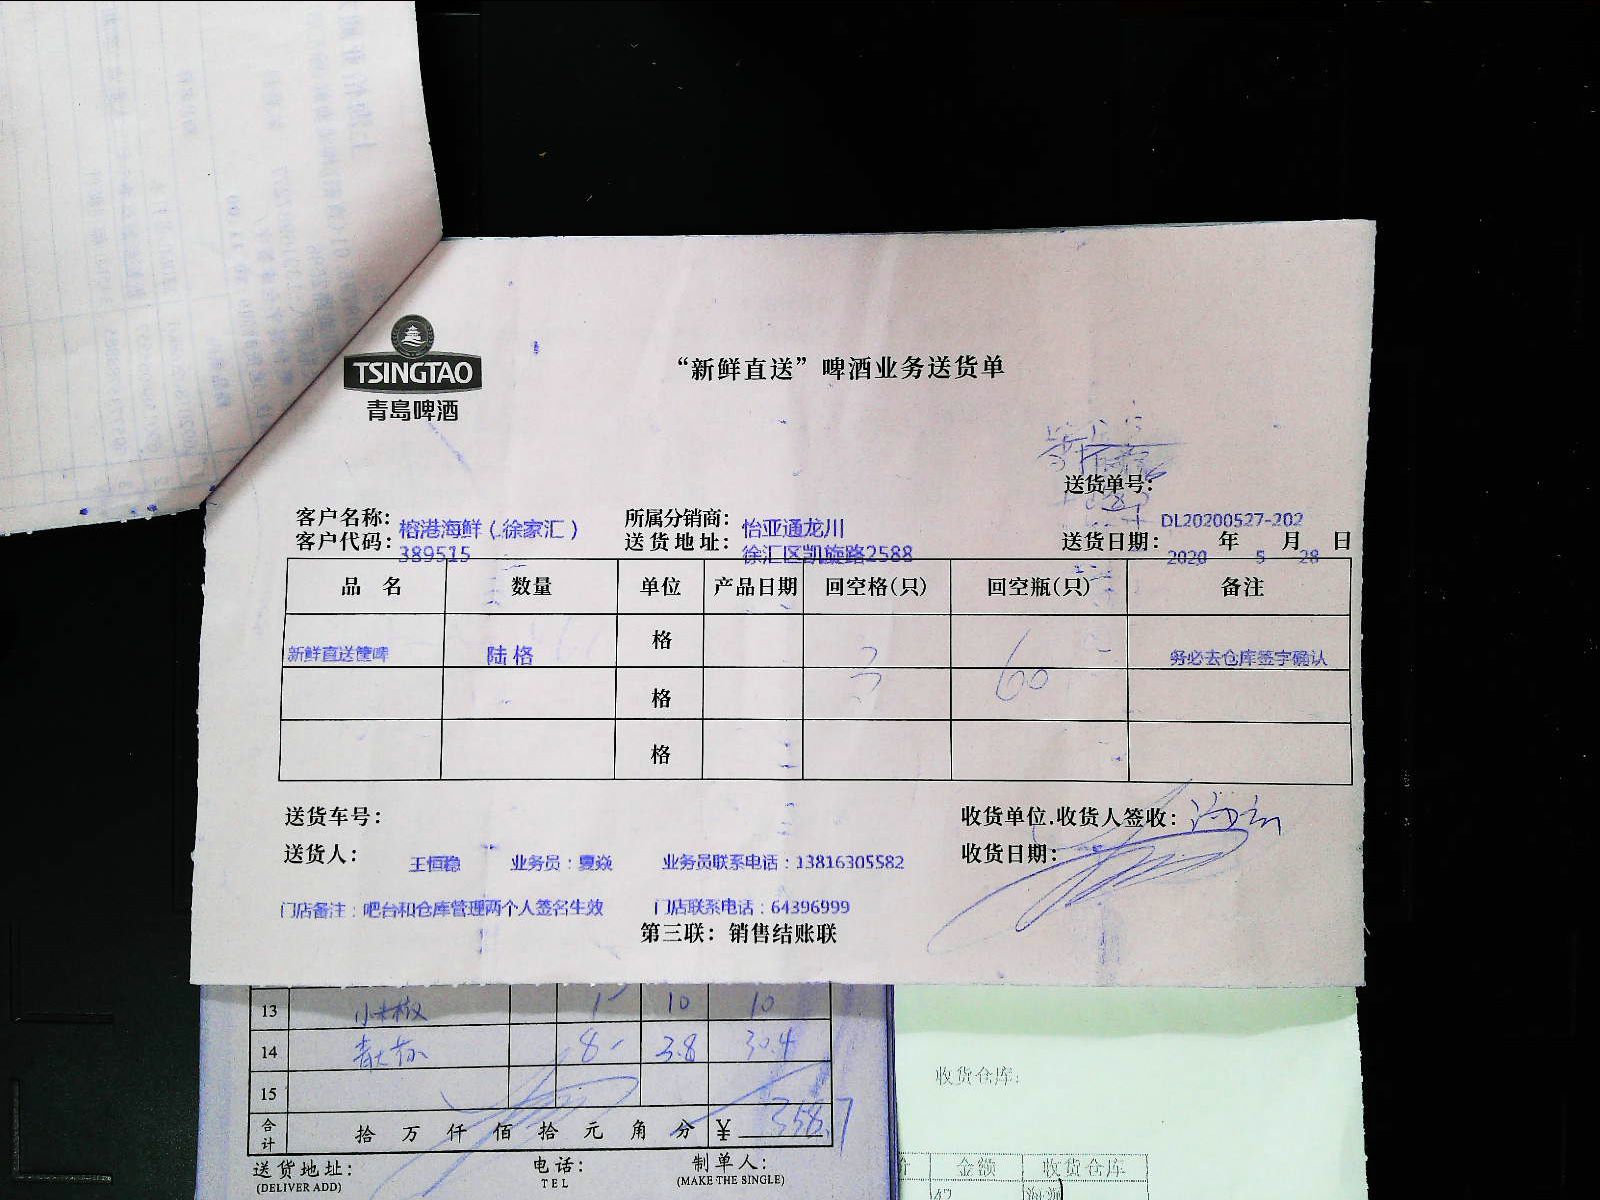 TSINGTAO
青岛啤酒
“新鲜直送”啤酒业务送货单
送货单号:
DL20200527-202
客户名称: 榕港海鲜（徐家汇） 所属分销商: 怡亚通龙川
客户代码: 389515 送货地址: 徐汇区凯旋路2588 送货日期: 2020 年 5 月 28 日
品 名 数量 单位 产品日期 回空格(只) 回空瓶(只) 备注
新鲜直送筐啤 陆格 格 3 60 务必去仓库签字确认
格
格
送货车号: 收货单位.收货人签收:
送货人: 王恒稳 业务员：夏焱 业务员联系电话：13816305582 收货日期:
门店备注：吧台和仓库管理两个人签名生效 门店联系电话：64396999
第三联: 销售结账联
13 小米椒 1 10 10
14 8 3.8 30.4
15
合计 拾 万 仟 佰 拾 元 角 分 ¥ 358.7
送货地址: 电话: 制单人:
(DELIVER ADD) TEL (MAKE THE SINGLE)
收货仓库:
价 金额 收货仓库
47